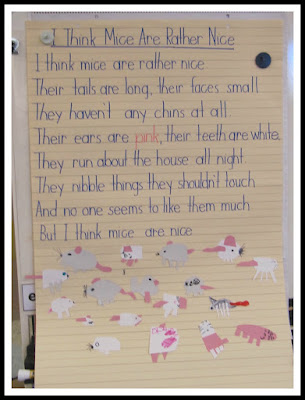 I Think Mice Are Rather Nice
I think mice are rather nice
Their tails are long, their faces small
They haven't any chins at all.
Their ears are pink, their teeth are white.
They run about the house all night.
They nibble things they shouldn't touch
And no one seems to like them much
But I think mice are nice